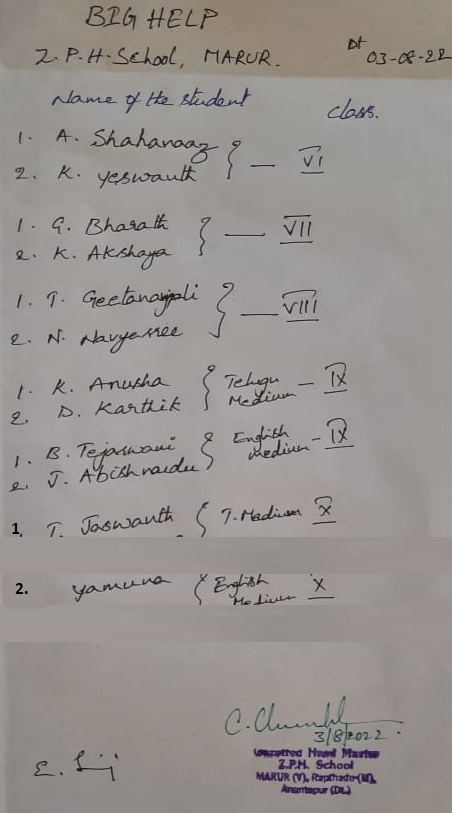 BIG HELP
Z.P.H. School, MARUR.
Dt 03-08-22
Name of the student class.
1. A. Shahanaaz
2. K. Yeswanth } — VI
1. G. Bharath
2. K. Akshaya } — VII
1. T. Geetananjali
2. N. Navyasree } — VIII
1. K. Anusha
2. D. Karthik } Telugu Medium — IX
1. B. Tejaswani
2. J. Abishnaidu } English Medium - IX
1, T. Jaswanth { T. Medium X
2. Yamuna { English Medium X
3/8/2022
Gazetted Head Master
Z.P.H. School
MARUR (V), Rapthadu (M),
Anantapur (Dt.)